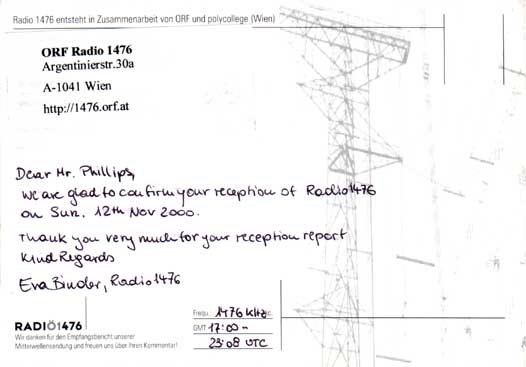 Radio 1476 entsteht in Zusammenarbeit von ORF und polycollege (Wien)
ORF Radio 1476
Argentinierstr.30a
A-1041 Wien
http://1476.orf.at
Dear Mr. Phillips,
we are glad to confirm your reception of Radio1476
on Sun. 12th Nov 2000.
Thank you very much for your reception report
Kind Regards
Eva Binder, Radio1476
Frequ.: 1476 kHz
GMT: 17:00-
23:08 UTC
RADIÖ1476
Wir danken für den Empfangsbericht unserer
Mittelwellensendung und freuen uns über Ihren Kommentar!